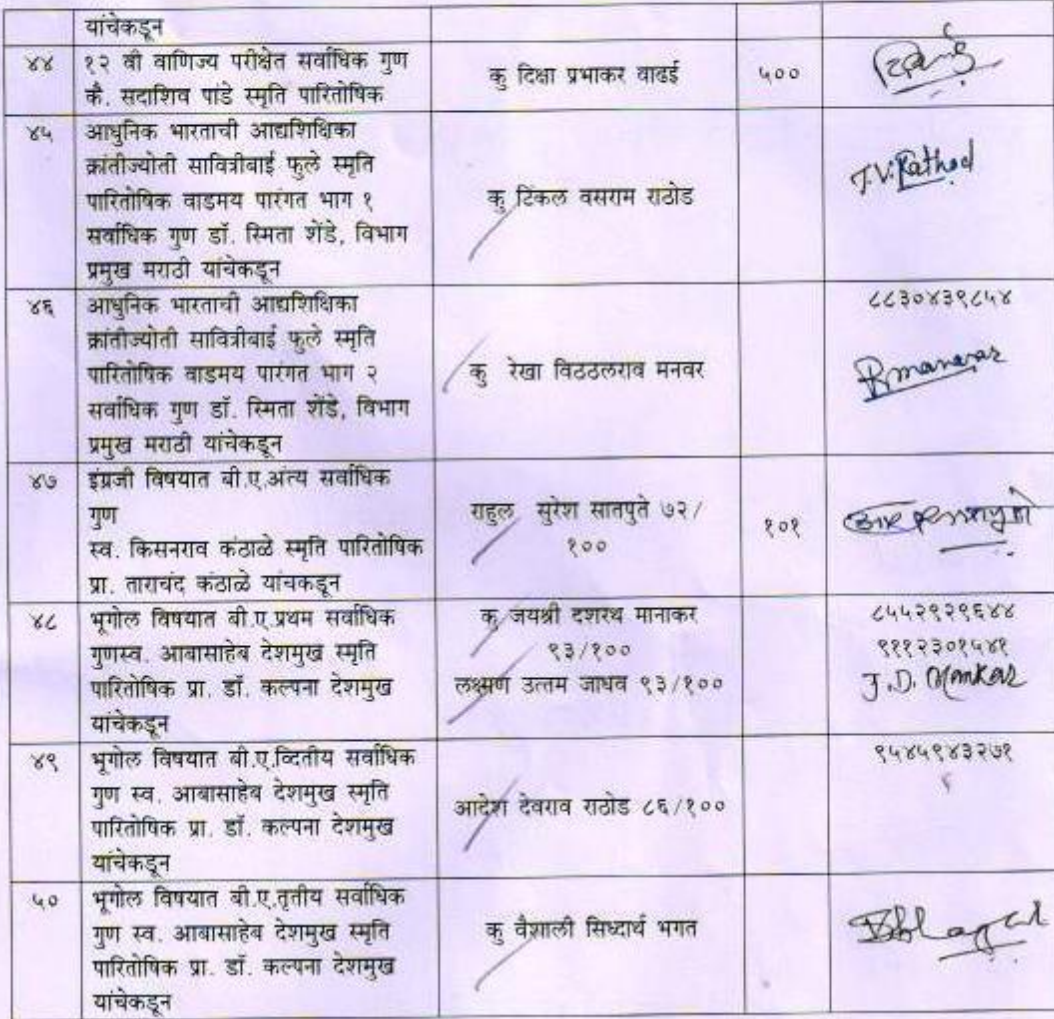 यांचेकडून
४४
१२ वी वाणिज्य परीक्षेत सर्वाधिक गुण
कै. सदाशिव पांडे स्मृति पारितोषिक
कु दिक्षा प्रभाकर वाढई
५००
४५
आधुनिक भारताची आद्यशिक्षिका
क्रांतीज्योती सावित्रीबाई फुले स्मृति
पारितोषिक वाडमय पारंगत भाग १
सर्वाधिक गुण डॉ. स्मिता शेंडे, विभाग
प्रमुख मराठी यांचेकडून
कु टिंकल वसराम राठोड
T.V. Rathod
४६
आधुनिक भारताची आद्यशिक्षिका
क्रांतीज्योती सावित्रीबाई फुले स्मृति
पारितोषिक वाडमय पारंगत भाग २
सर्वाधिक गुण डॉ. स्मिता शेंडे, विभाग
प्रमुख मराठी यांचेकडून
कु रेखा विठठलराव मनवर
८८३०४३९८५४
Rmanavar
४७
इंग्रजी विषयात बी.ए.अंत्य सर्वाधिक
गुण
स्व. किसनराव कंठाळे स्मृति पारितोषिक
प्रा. ताराचंद कंठाळे यांचकडून
राहुल सुरेश सातपुते ७२/
१००
१०१
४८
भूगोल विषयात बी.ए.प्रथम सर्वाधिक
गुणस्व. आबासाहेब देशमुख स्मृति
पारितोषिक प्रा. डॉ. कल्पना देशमुख
यांचेकडून
कु जयश्री दशरथ मानाकर
९३/१००
लक्ष्मण उत्तम जाधव ९३/१००
८५५२९२९६४४
९११२३०१५४१
J.D. Mankar
४९
भूगोल विषयात बी.ए.व्दितीय सर्वाधिक
गुण स्व. आबासाहेब देशमुख स्मृति
पारितोषिक प्रा. डॉ. कल्पना देशमुख
यांचेकडून
आदेश देवराव राठोड ८६/१००
९५४५९४३२७१
५०
भूगोल विषयात बी.ए.तृतीय सर्वाधिक
गुण स्व. आबासाहेब देशमुख स्मृति
पारितोषिक प्रा. डॉ. कल्पना देशमुख
यांचेकडून
कु वैशाली सिध्दार्थ भगत